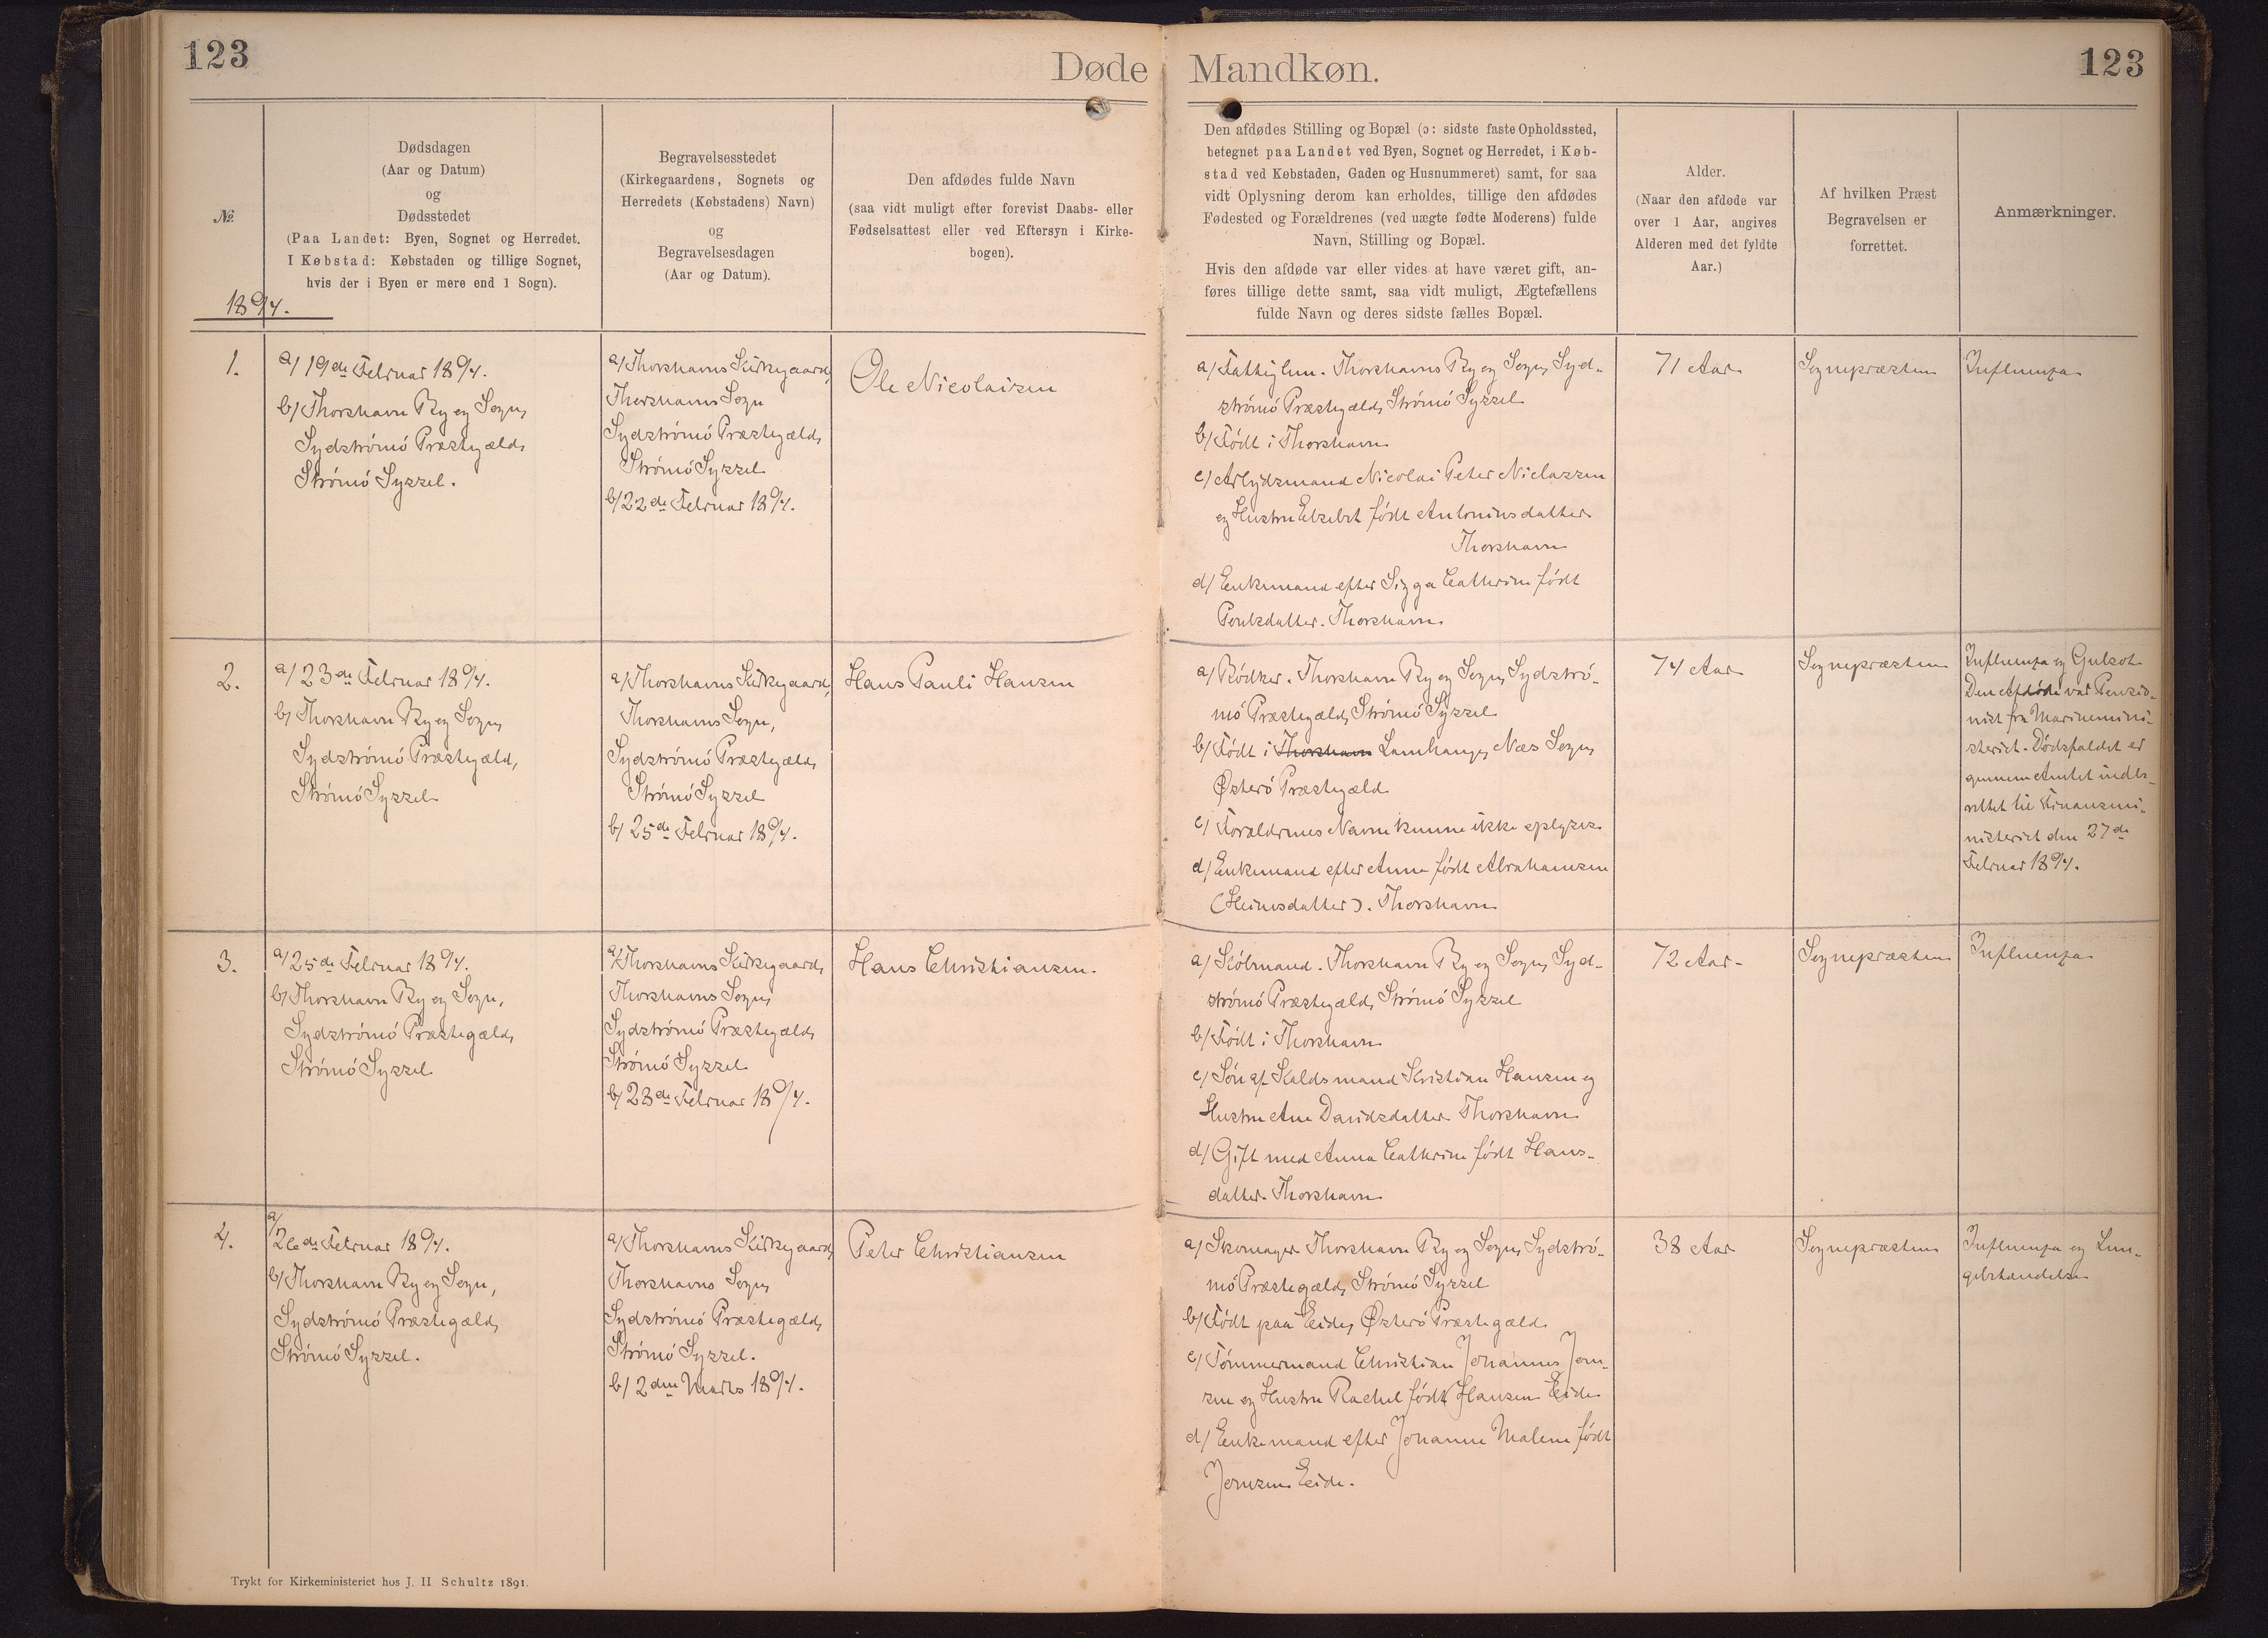 123
Døde Mandkøn.
123
№
1894.
Dødsdagen
(Aar og Datum)
og
Dødsstedet
(Paa Landet: Byen, Sognet og Herredet.
I Købstad: Købstaden og tillige Sognet,
hvis der i Byen er mere end 1 Sogn).
Begravelsesstedet
(Kirkegaardens, Sognets og
Herredets (Købstadens) Navn)
og
Begravelsesdagen
(Aar og Datum).
Den afdødes fulde Navn
(saa vidt muligt efter forevist Daabs- eller
Fødselsattest eller ved Eftersyn i Kirke-
bogen).
Den afdødes Stilling og Bopæl (ɔ: sidste faste Opholdssted,
betegnet paa Landet ved Byen, Sognet og Herredet, i Køb-
stad ved Købstaden, Gaden og Husnummeret) samt, for saa
vidt Oplysning derom kan erholdes, tillige den afdødes
Fødested og Forældrenes (ved uægte fødte Moderens) fulde
Navn, Stilling og Bopæl.
Hvis den afdøde var eller vides at have været gift, an-
føres tillige dette samt, saa vidt muligt, Ægtefællens
fulde Navn og deres sidste fælles Bopæl.
Alder.
(Naar den afdøde var
over 1 Aar, angives
Alderen med det fyldte
Aar.)
Af hvilken Præst
Begravelsen er
forrettet.
Anmærkninger.
1.
a/ 19de Februar 1894.
b/ Thorshavn By og Sogn,
Sydstrómó Præstegæld,
Strómó Syssel.
a/ Thorshavns Kirkegaard,
Thorshavns Sogn
Sydstrómó Præstegæld,
Strómó Syssel
b/ 22de Februar 1894.
Ole Nicolaisen
a/ Fattiglem. Thorshavns By og Sogn, Syd-
strómó Præstegæld, Strómó Syssel
b/ Født i Thorshavn
c/ Arbejdsmand Nicolai Peter Niclassen
og Hustru Elsebet født Antoniusdatter
Thorshavn
d/ Enkemand efter Sizga Cathrine født
Poulsdatter. Thorshavn.
71 Aar
Sognepræsten
Influenza
2.
a/ 23de Februar 1894.
b/ Thorshavn By og Sogn,
Sydstrómó Præstegæld,
Strómó Syssel
a/ Thorshavns Kirkegaard,
Thorshavns Sogn,
Sydstrómó Præstegæld,
Strómó Syssel
b/ 25de Februar 1894.
Hans Pauli Hansen
a/ Bódker. Thorshavn By og Sogn, Sydstró-
mó Præstegæld, Strómó Syssel
b/ Født i Thorshavn Lamhauge, Næs Sogn,
Østeró Præstegæld
c/ Forældrenes Navne kunne ikke oplyses
d/ Enkemand efter Anne født Abrahamsen
(Heinesdatter). Thorshavn
74 Aar
Sognepræsten
Influenza og Gulsot
Den Afdøde var Pensio-
nist fra Marinemini-
steriet. Dødsfaldet er
gennem Amtet indbe-
rettet til Finansmi-
nisteriet den 27de
Februar 1894.
3.
a/ 25de Februar 1894.
b/ Thorshavn By og Sogn,
Sydstrómó Præstegæld,
Strómó Syssel
a/ Thorshavns Kirkegaard,
Thorshavns Sogn,
Sydstrómó Præstegæld,
Strómó Syssel
b/ 28de Februar 1894.
Hans Christiansen.
a/ Kóbmand. Thorshavn By og Sogn, Syd-
strómó Præstegæld, Strómó Syssel
b/ Født i Thorshavn
c/ Són af Kaldsmand Kristian Hansen og
Hustru Ane Davidsdatter Thorshavn
d/ Gift med Anna Cathrine født Hans-
datter Thorshavn
72 Aar-
Sognepræsten
Influenza
4.
a/
26de Februar 1894.
b/ Thorshavn By og Sogn,
Sydstrómó Præstegæld,
Strómó Syssel.
a/ Thorshavns Kirkegaard,
Thorshavns Sogn,
Sydstrómó Præstegæld,
Strómó Syssel.
b/ 2den Marts 1894.
Peter Christiansen
a/ Skomager Thorshavn By og Sogn, Sydstró-
mó Præstegæld, Strómó Syssel
b/ Født paa Eide, Østeró Præstegæld
c/ Tómmermand Christian Johannes Joen-
sen og Hustru Rachel født Hansen Eide
d/ Enkemand efter Johanne Malene født
Joensen Eide.
38 Aar
Sognepræsten
Influenza og Lun-
gebetændelse
Trykt for Kirkeministeriet hos J. H Schultz 1891.